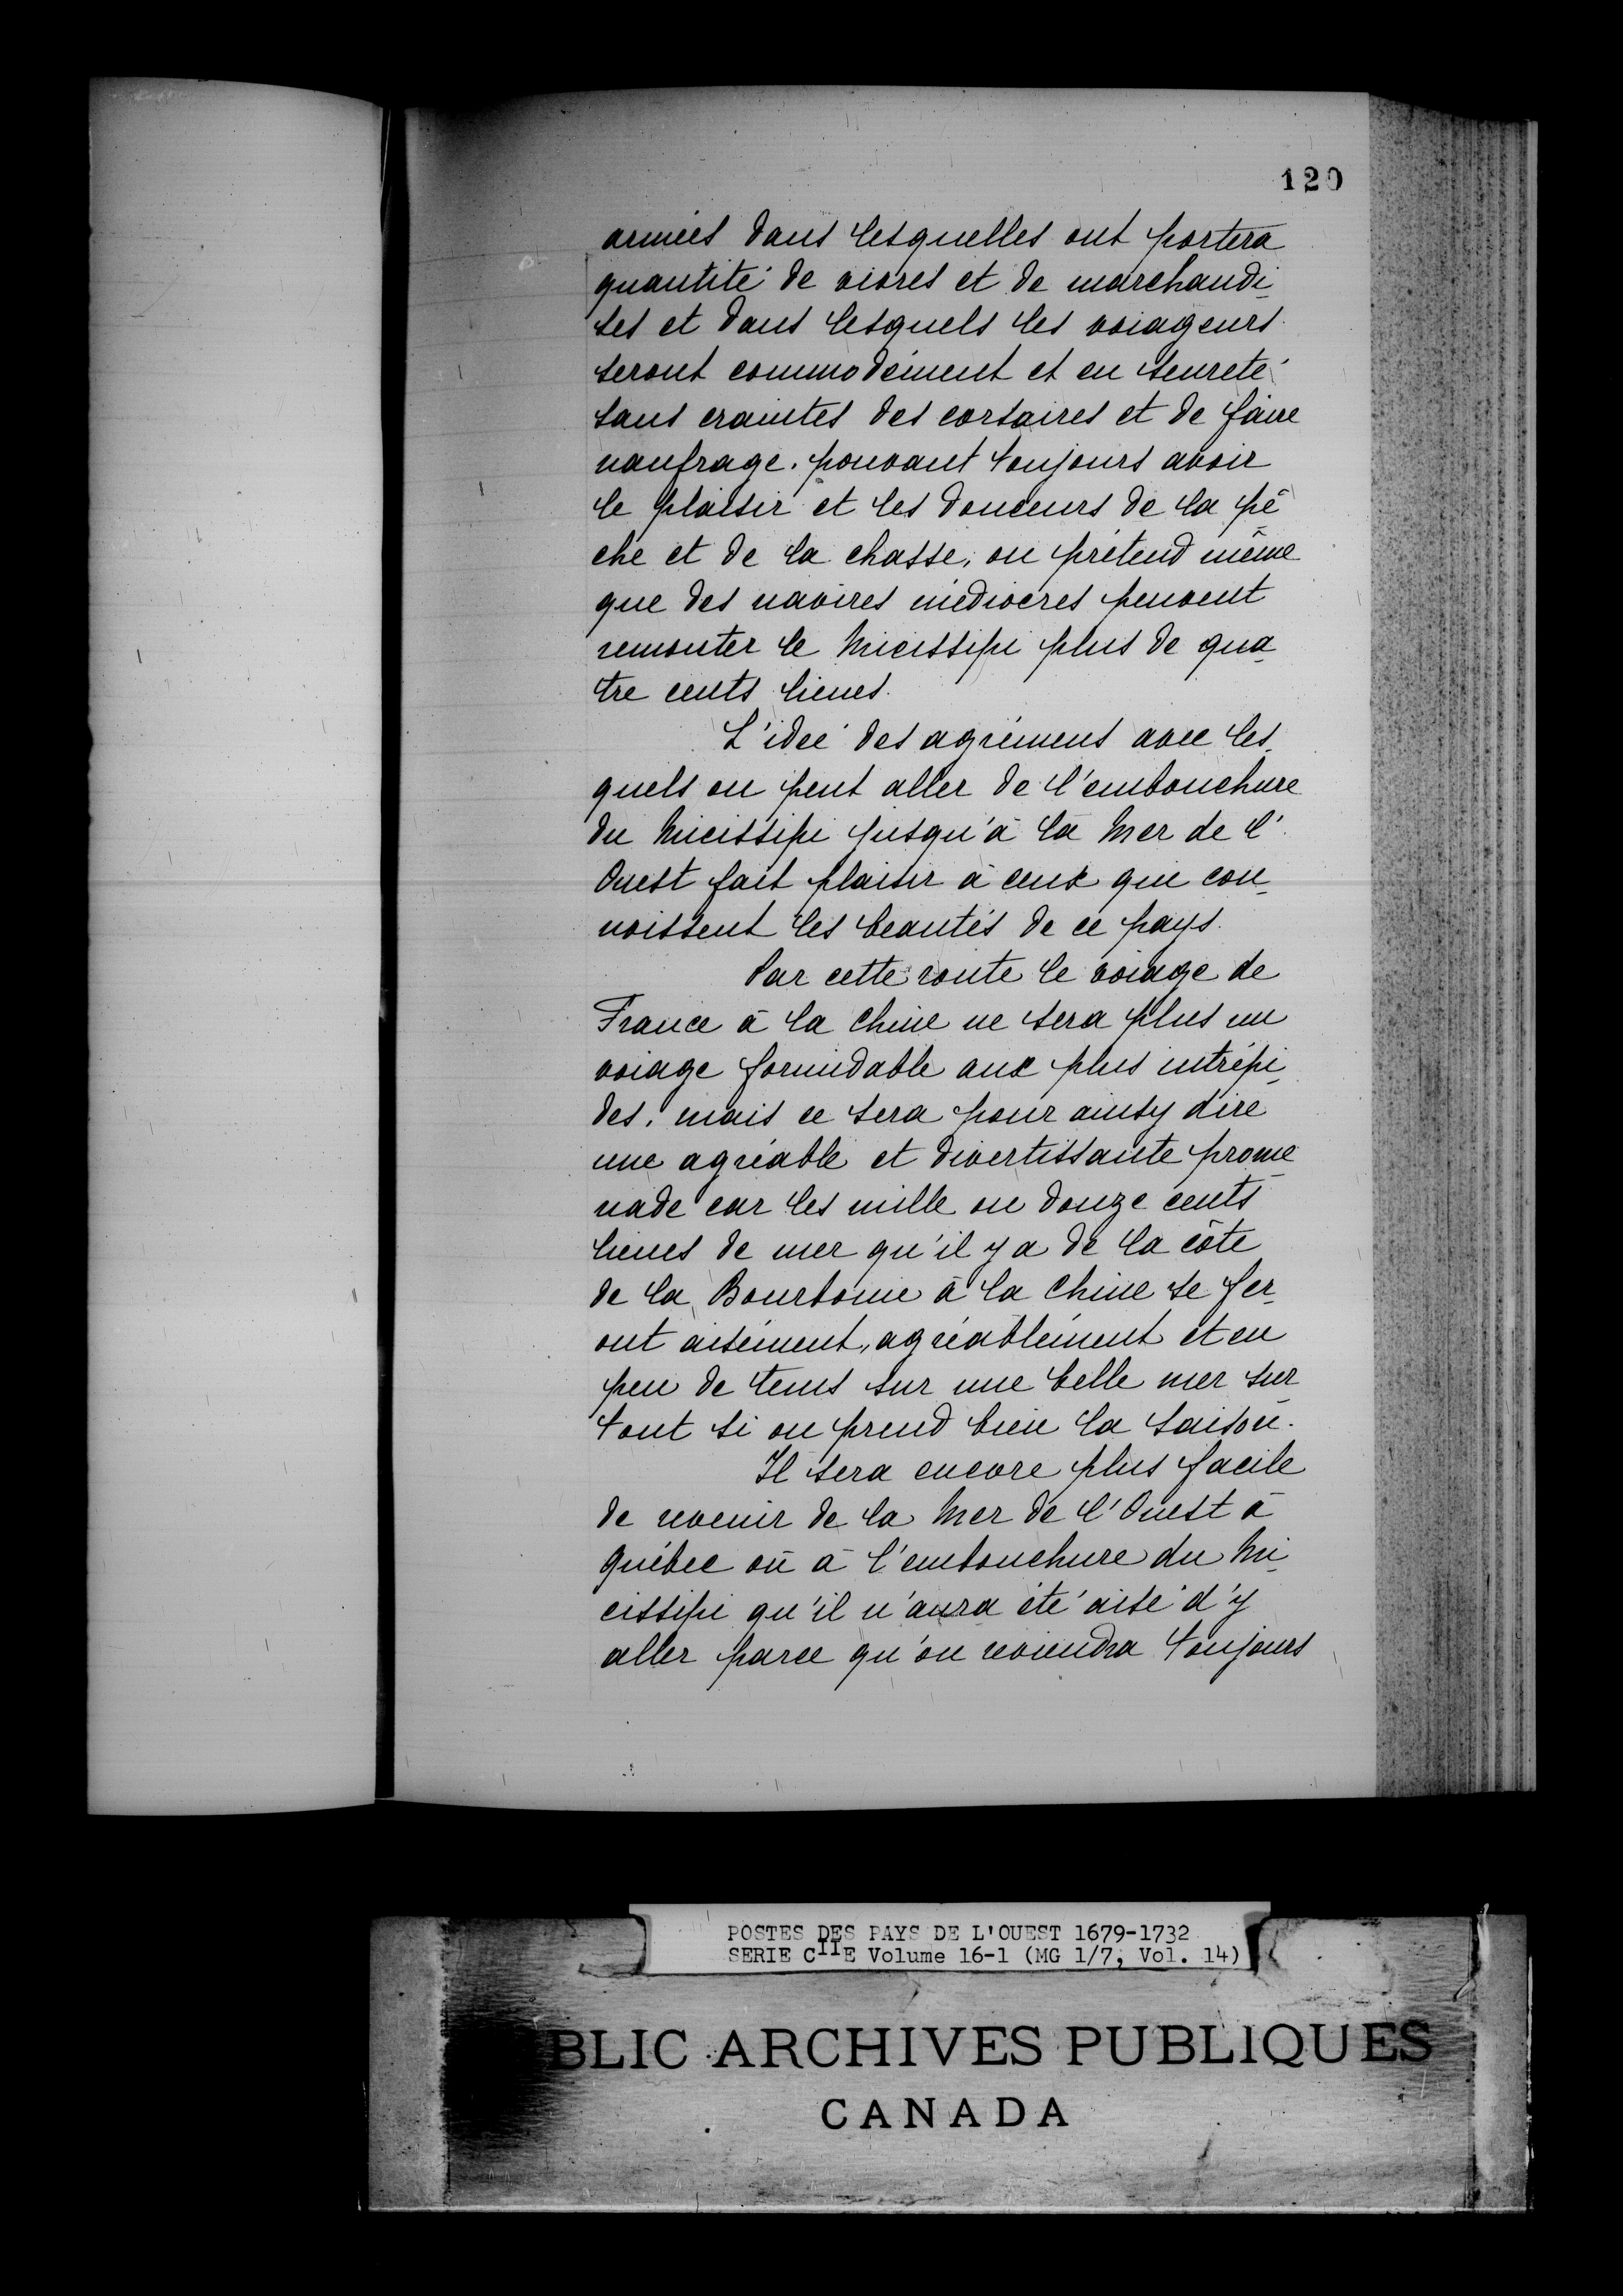 120
armées dans lesquelles ont portera
quantité de vivres et de marchandi-
ses et dans lesquels les voiageurs
seront commodément et en seureté
sans craintes des corsaires et de faire
naufrage. pouvant toujours avoir
le plaisir et les douceurs de la pê-
che et de la chasse, on prétend même
que des navires médiocres peuvent
remonter le Micissipi plus de qua-
tre cents lieues.
L'ideé des agrémens avec les-
quels on peut aller de l'embouchure
du Micissipi jusqu'à la Mer de l'
Ouest fait plaisir à ceux qui con-
noissent les beautés de ce pays.
Par cette route le voiage de
France à la Chine ne sera plus un
voiage formidable aux plus intrépi-
des, mais ce sera pour ainsy dire
une agréable et divertissante prome-
nade car les mille ou douze cents
lieues de mer qu'il y a de la côte
de la Bourbonie à la Chine se fer-
ont aisément, agréablement et en
peu de tems sur une belle mer sur
tout si on prend bien la saison.
Il sera encore plus facile
de revenir de la Mer de l'Ouest à
Québec où à l'embouchure du Mi-
cissipi qu'il n'aura été aisé d'y
aller parce qu'on reviendra toujours
POSTES DES PAYS DE L'OUEST 1679-1732
SERIE CIIE Volume 16-1 (MG 1/7, Vol. 14)
BLIC ARCHIVES PUBLIQUES
CANADA